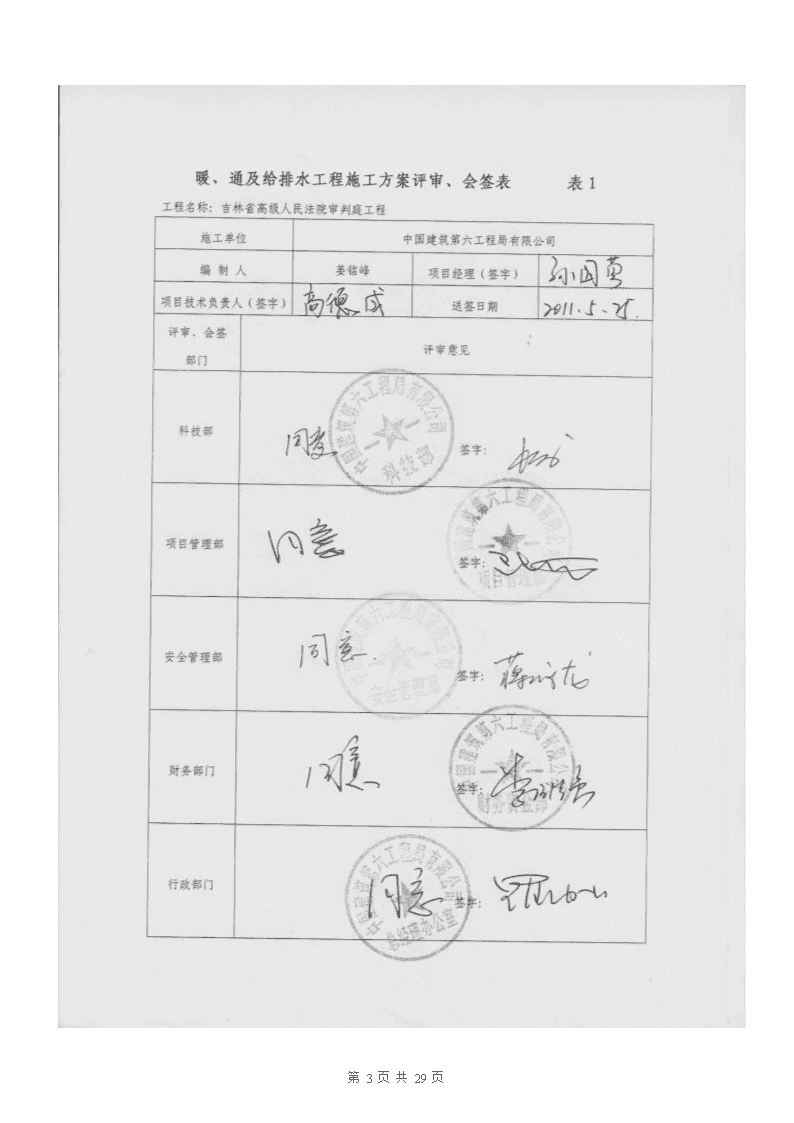 暖、通及给排水工程施工方案评审、会签表 表1
工程名称：吉林省高级人民法院审判庭工程
施工单位 中国建筑第六工程局有限公司
编 制 人 姜铭峰 项目经理（签字）
项目技术负责人（签字） 高德成 送签日期 2011.5.25.
评审、会签
部门
评审意见
科技部 同意 中国建筑第六工程局有限公司 科技部 签字：
项目管理部 同意 中国建筑第六工程局有限公司 项目管理部 签字：
安全管理部 同意. 中国建筑第六工程局有限公司 安全管理部 签字：
财务部门 同意 中国建筑第六工程局有限公司 财务资金部 签字：
行政部门 同意 中国建筑第六工程局有限公司 总经理办公室 签字：
第 3 页 共 29 页